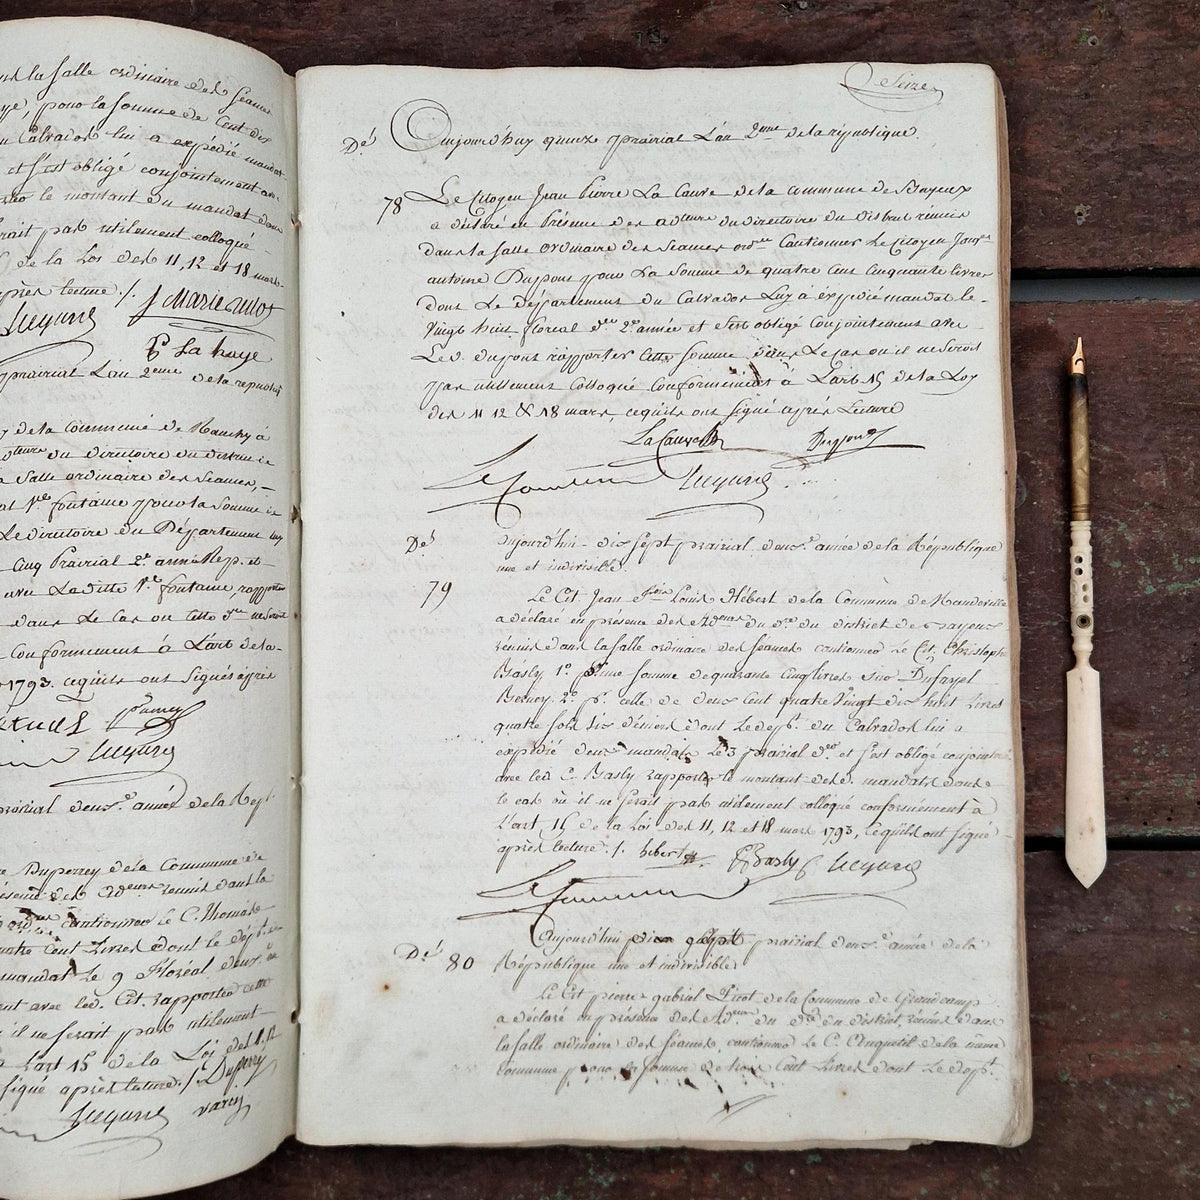 dans la salle ordinaire des séances
pour la somme de Cent dix
Calvados lui a expédié mandat
et s'est obligé conjointement avec
le montant du mandat dans
serait pas utilement colloqué
de la Loi des 11, 12 et 18 mars
après lecture /. J Marie
La haye
prairial L'an 2eme de la republiq
de la Commune de Mauchy à
du Directoire du District
Salle ordinaire des Séances,
fontaine pour la Somme de
Le directoire du Département
Cinq Prairial 2e année Rep. et
avec Ladite Ve fontaine, rapporter
dans Le Cas ou Cette Sme ne Seroit
Conformement à L'art de la
1793. cequ'ils ont Signés après
prairial deuxe année de la Rep.
Duperrey de la Commune de
des Adteurs réunis dans la
ordre cautionner le C. Thomas
quatre Cent Livres dont le dépt.
mandat le 9 floréal deuxe
avec led. Cit. rapporter cette
il ne serait pas utilement
L'art 15 de la Loi des 11, 12
signé après lecture /. Duperrey
varin
Seize
Dt
Aujourd'huy quinze prairial L'an 2eme de la république
78 Le Citoyen Jean Pierre La Cauve de la commune de Bayeux
a déclaré en Présence des adteurs du directoire du district réunis
dans la Salle Ordinaire des Seances ordre Cautionner Le Citoyen Jacqes
antoine Dupont pour La Somme de quatre cens Cinquante livres
dont Le Département du Calvados Luy a éxpédié mandat le
Vingt huit floreal der 2e année et s'est obligé Conjointement avec
Led. dupont rapporter Cette Somme dans Le cas ou il ne Seroit
pas utilement Colloqué Conformément à L'art 15 de la Loy
des 11 12 & 18 mars, cequ'ils ont Signé après Lecture
La Cauve Dupont
Dt
Aujourd'hui dix Sept prairial deuxe année de la République
une et indivisible.
79 Le Cit Jean Louis Hébert de la Commune de Mandeville
a déclaré en présence des Adteurs du dre du district de Bayeux
réunis dans la salle ordinaire des séances cautionner le Cit. Christophe
Basly 1o pour une somme de quarante cinq livres sur Dufayel
Berney 2o pr. celle de deux Cent quatre Vingt dix huit Livres
quatre sols six deniers dont le dépt. du Calvados lui a
expédié deux mandats le 3 prairial der et s'est obligé conjointmt
avec led. C. Basly rapporter le montant desd. mandats dans
le cas où il ne serait pas utilement colloqué conformément à
L'art 15 de la Loi des 11, 12 et 18 mars 1793, Ce qu'ils ont signé
après lecture /. hebert Basly
Dt
Aujourd'hui prairial deuxe année de la
80 République une et indivisible
Le Cit pierre gabriel Picot de la Commune de Grandcamp
a déclaré en présence des Adteurs du dre du district réunis dans
la salle ordinaire des séances cautionner le C. Anquetil de la même
commune pour la somme de trois Cent Livres dont Le dépt.